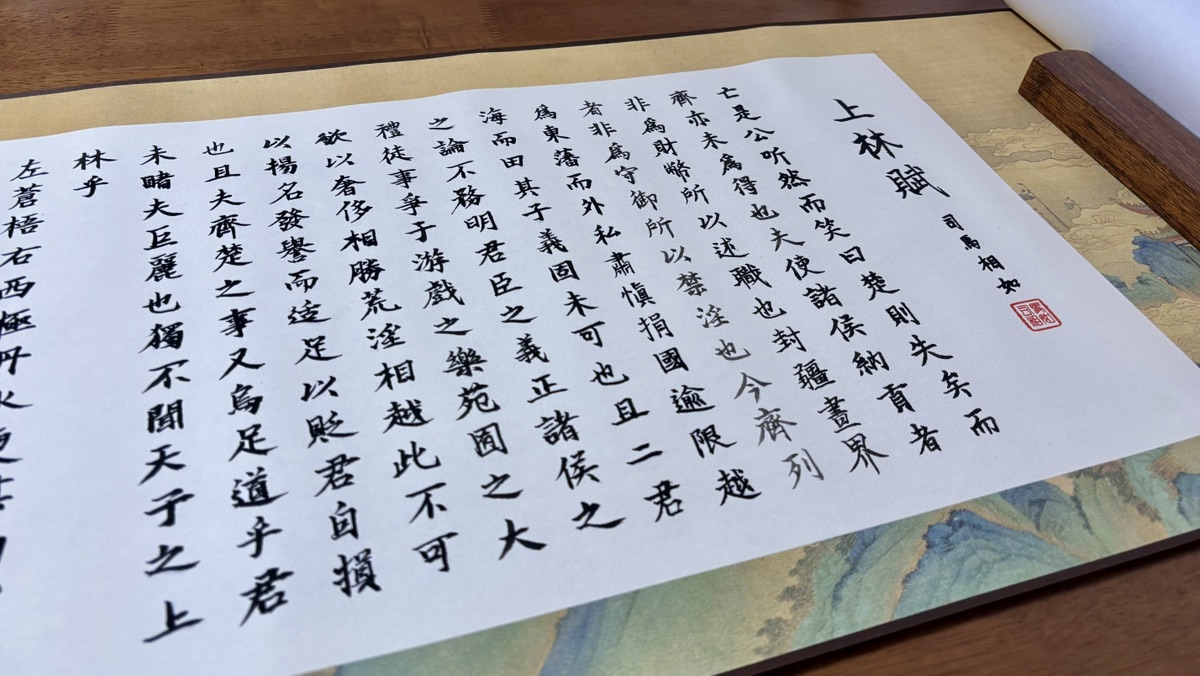 上林賦
司馬相如
亡是公听然而笑曰楚則失矣而
齊亦未爲得也夫使諸侯納貢者
非爲財幣所以述職也封疆畫界
者非爲守御所以禁淫也今齊列
爲東藩而外私肅慎捐國逾限越
海而田其于義固未可也且二君
之論不務明君臣之義正諸侯之
禮徒事爭于游戲之樂苑囿之大
欲以奢侈相勝荒淫相越此不可
以揚名發譽而适足以貶君自損
也且夫齊楚之事又烏足道乎君
未睹夫巨麗也獨不聞天子之上
林乎
左蒼梧右西極丹水更其